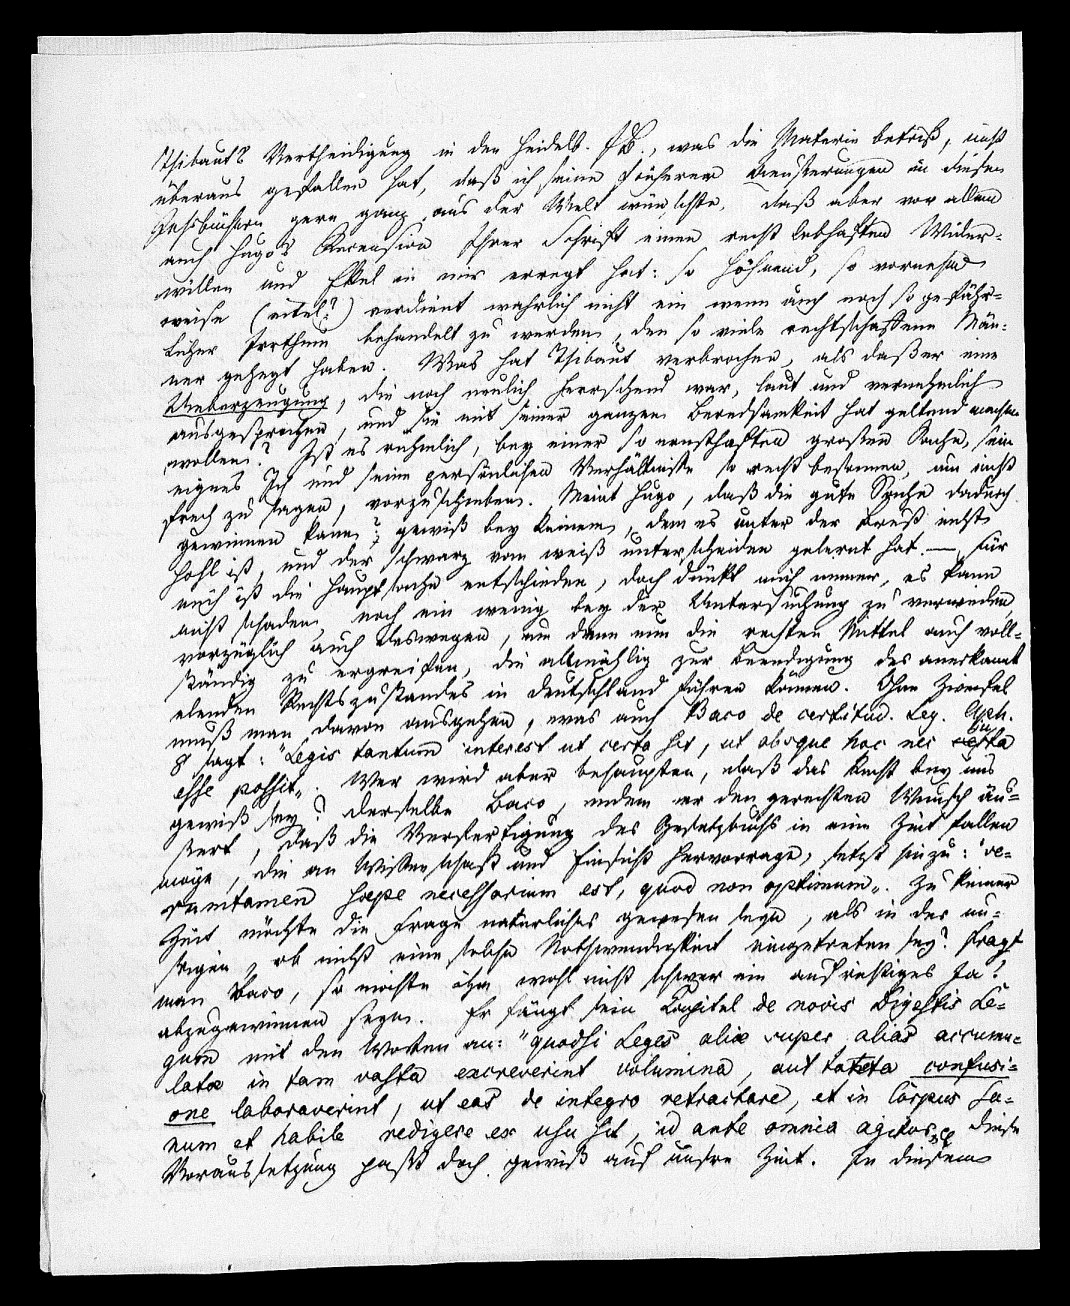 Thibauts Vertheidigung in den Heidelb. JB., was die Materie betrifft, nicht
überaus gefallen hat, daß ich seine früheren Aeusserungen in diesen
Jahrbüchern gern ganz aus der Welt wünschte, daß aber vor allem
auch Hugo's Recension Ihrer Schrift einen recht lebhaften Wider-
willen und Ekel in mir erregt hat: so höhnend, so vornehm
weise (eitel?) verdient wahrlich nicht ein wenn auch noch so gefähr-
licher Irrthum behandelt zu werden, den so viele rechtschaffene Män-
ner gehegt haben. Was hat Thibaut verbrochen, als daß er eine
Ueberzeugung, die noch neulich herrschend war, laut und vernehmlich
ausgesprochen, und sie mit seiner ganzen Beredsamkeit hat geltend machen
wollen? Ist es rühmlich, bey einer so ernsthaften großen Sache, sein
eignes Ich und seine persönlichen Verhältnisse so recht besonnen, um nicht
frech zu sagen, vorzuschieben. Meint Hugo, daß die gute Sache dadurch
gewinnen kann? gewiß bey keinem, dem es unter der Brust nicht
hohl ist, und der schwarz vom weiß unterscheiden gelernt hat. — Für
mich ist die Hauptsache entschieden, doch dünkt mich immer, es kann
nicht schaden noch ein wenig bey der Untersuchung zu verweilen,
vorzüglich auch deswegen, um dann nun die rechten Mittel auch voll-
ständig zu ergreifen, die allmählig zur Beendigung des anerkannt
elenden Rechtszustandes in Deutschland führen können. Ohne Zweifel
muß man davon ausgehen, was auch Baco de certitud. Leg. Aph.
8 sagt: "Legis tantum interest ut certa sit, ut absque hoc nec justa
esse possit„. Wer wird aber behaupten, daß das Recht bey uns
gewiß sey? Derselbe Baco, indem er den gerechten Wunsch äus-
sert, daß die Verfertigung des Gesetzbuchs in eine Zeit fallen
möge, die an Wissenschaft und Einsicht hervorrage, setzt hinzu: "ve-
rumtamen saepe necessarium est, quod non optimum„. Zu keiner
Zeit möchte die Frage natürlicher gewesen seyn, als in der un-
srigen, ob nicht eine solche Nothwendigkeit eingetreten sey? Fragt
man Baco, so möchte ihm wohl nicht schwer ein aufrichtiges Ja!
abzugewinnen seyn. Er fängt sein Capitel de novis Digestis Le-
gum mit den Worten an: "quodsi Leges aliæ super alias accumu-
latæ in tam vasta excreverint volumina, aut tanta confusi-
one laboraverint, ut eas de integro retractare, et in Corpus sa-
num et habile redigere ex usu sit, id ante omnia agito„ diese
Voraussetzung paßt doch gewiß auf unsre Zeit. In diesem